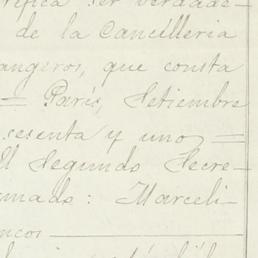 rifica ser verdade-
de la Cancilleria
angeros, que consta
= Paris, Setiembre
sesenta y uno =
El Segundo Secre-
rmado: Marceli-
ncos